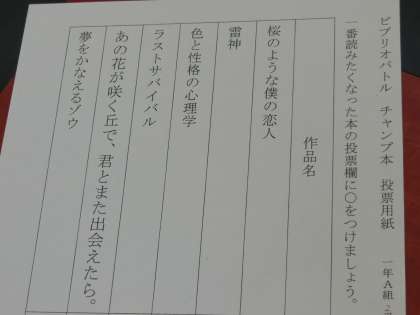 ビブリオバトル　チャンプ本　投票用紙　　一年A組
一番読みたくなった本の投票欄に〇をつけましょう。
作品名
桜のような僕の恋人
雷神
色と性格の心理学
ラストサバイバル
あの花が咲く丘で、君とまた出会えたら。
夢をかなえるゾウ